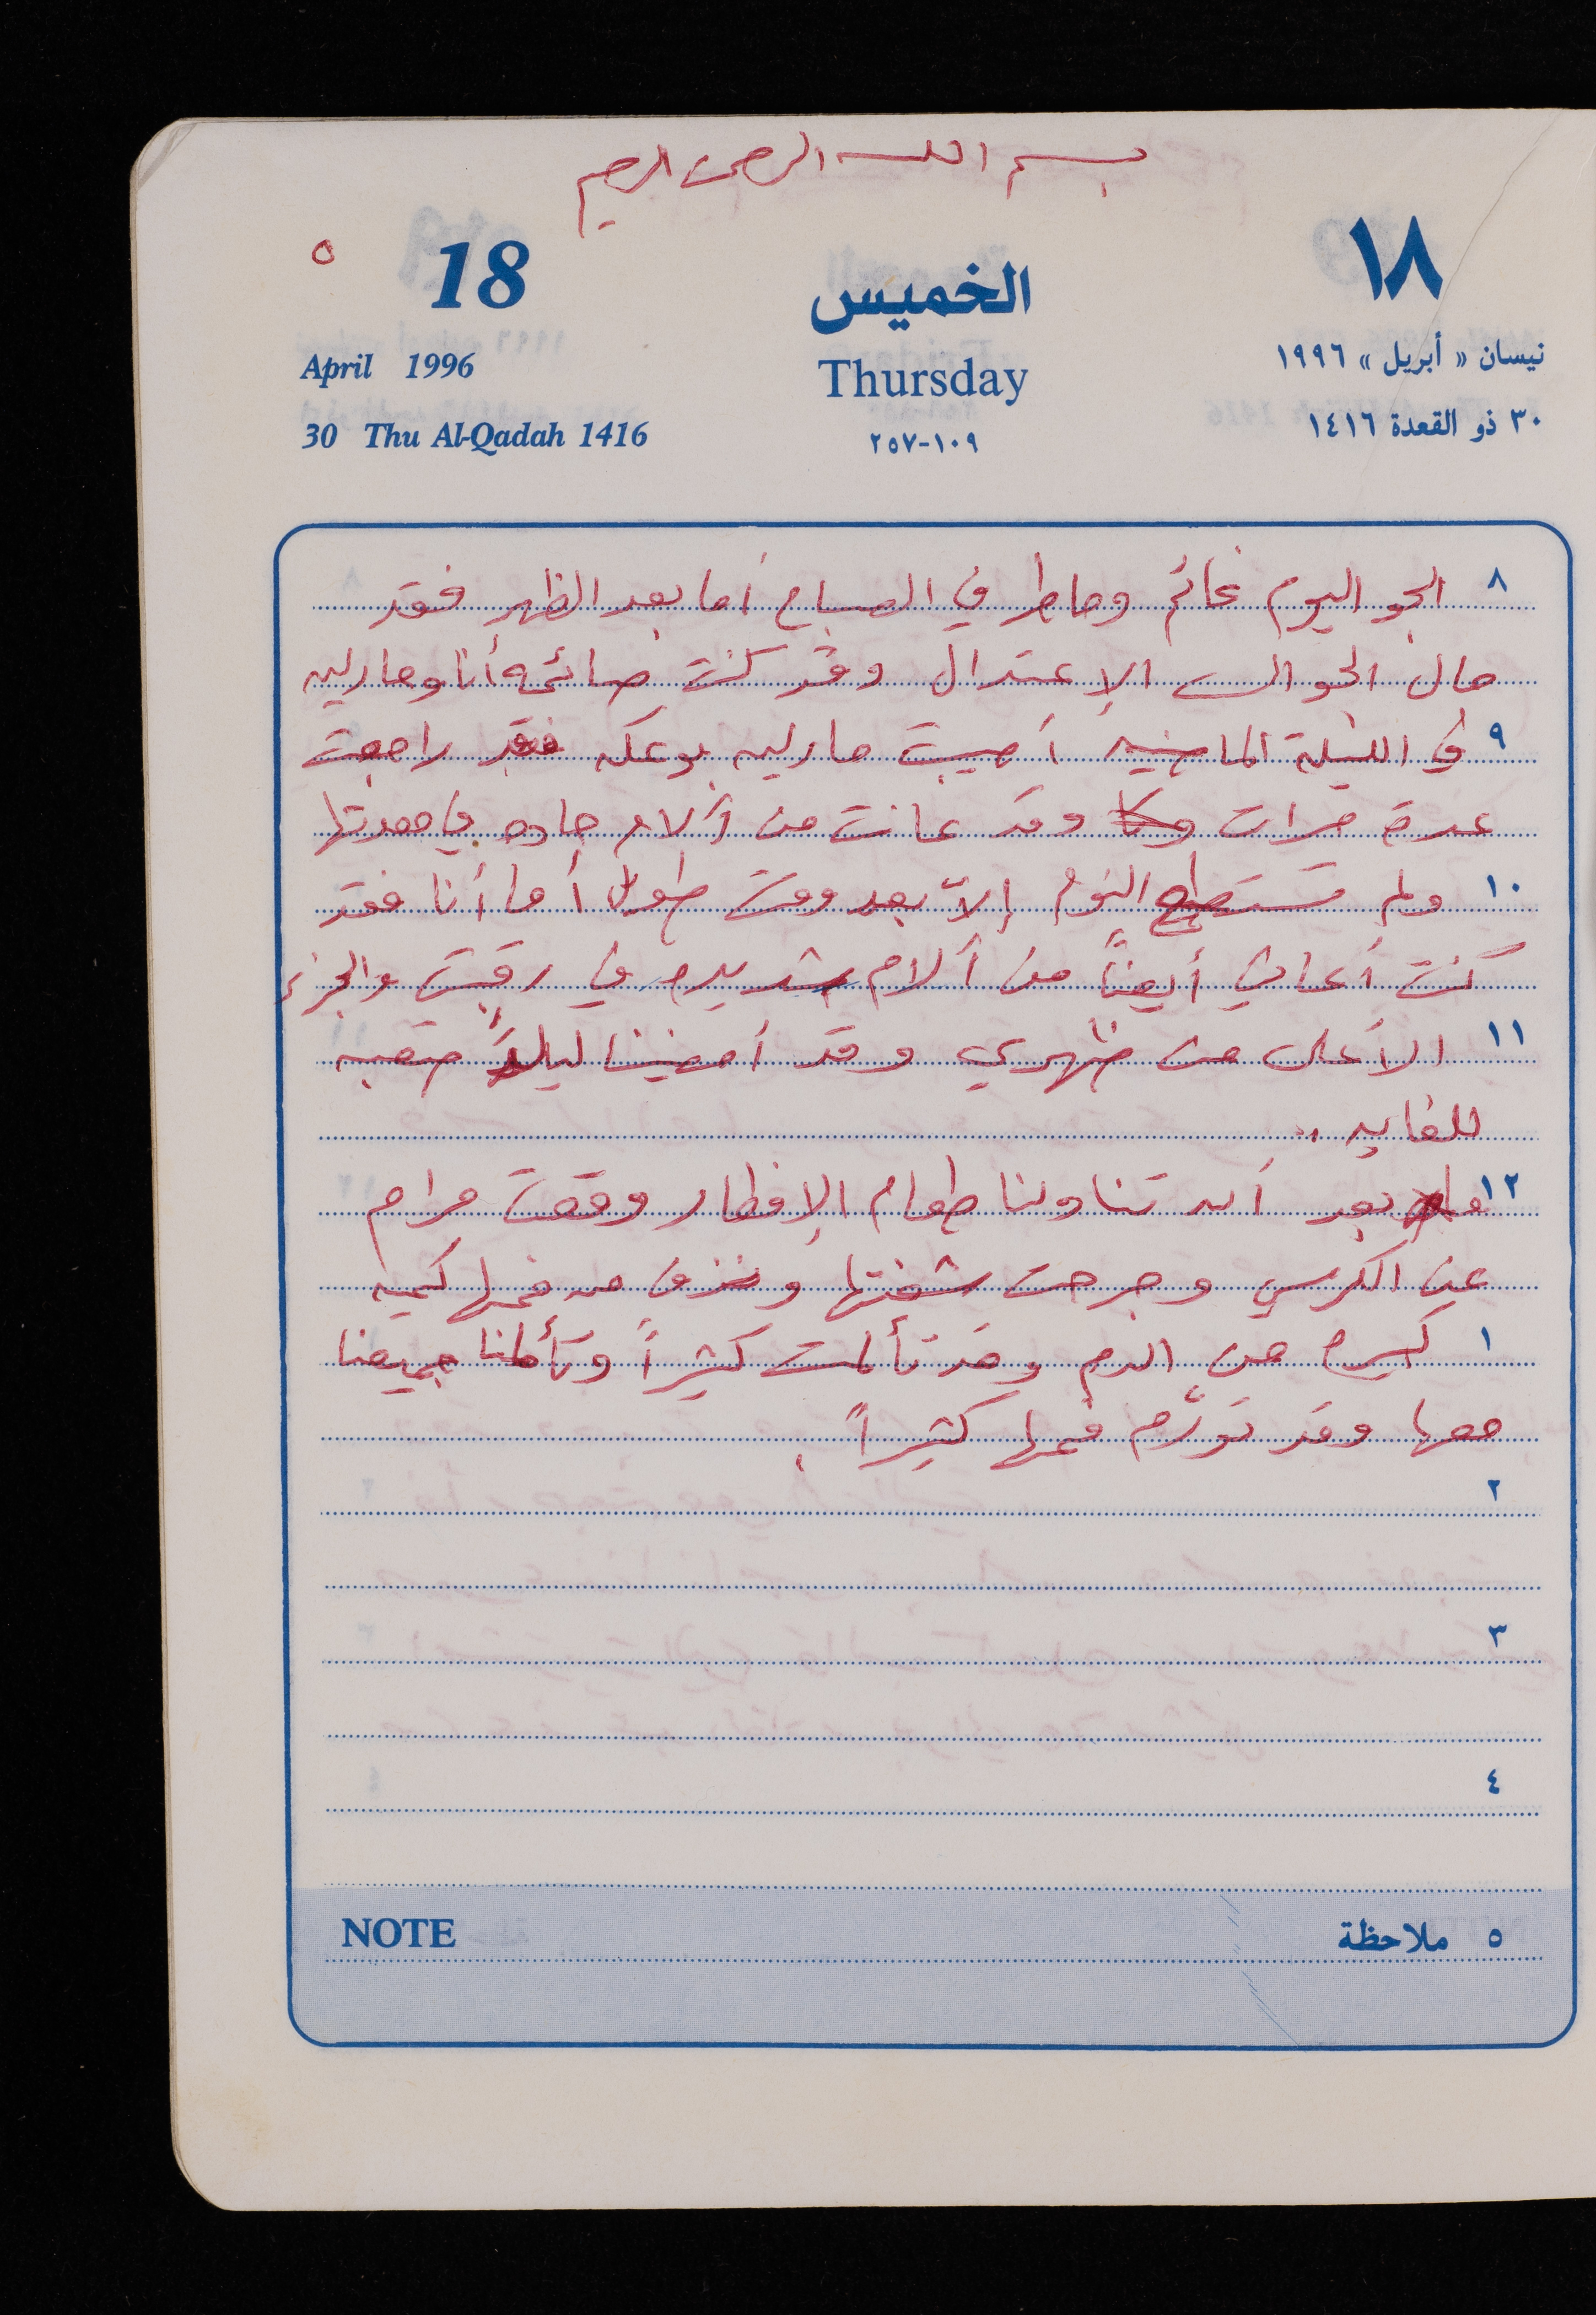 بسم الله الرحمن الرحيم
٥
18 الخميس ١٨
April 1996 Thursday نيسان « أبريل » ١٩٩٦
30 Thu Al-Qadah 1416 ١٠٩-٢٥٧ ٣٠ ذو القعدة ١٤١٦
٨ الجو اليوم غائم وماطر في الصباح أما بعد الظهر فقد
مال الجو الى الإعتدال وقد كنت صائمه أنا ومارلين
٩ في الليلة الماضيه أصيبت مارلين بوعكه فقد راجعت
عدة مرات وقد عانت من آلام حاده في معدتها
١٠ ولم تستطع النوم إلاّ بعد وقت طويل أما أنا فقد
كنت أعاني أيضاً من آلام شديده في رقبتي والجزء
١١ الأعلى من ظهري وقد أمضينا ليلةً متعبه
للغايه ..
١٢ بعد أن تناولنا طعام الإفطار وقعت مرام
عن الكرسي وجرحت شفتها ونزف من فمها كميه
١ كبيره من الدم وقد تألمت كثيراً وتألمنا جميعنا
معها وقد تورّم فمها كثيراً .
٢
٣
٤
NOTE ٥ ملاحظة